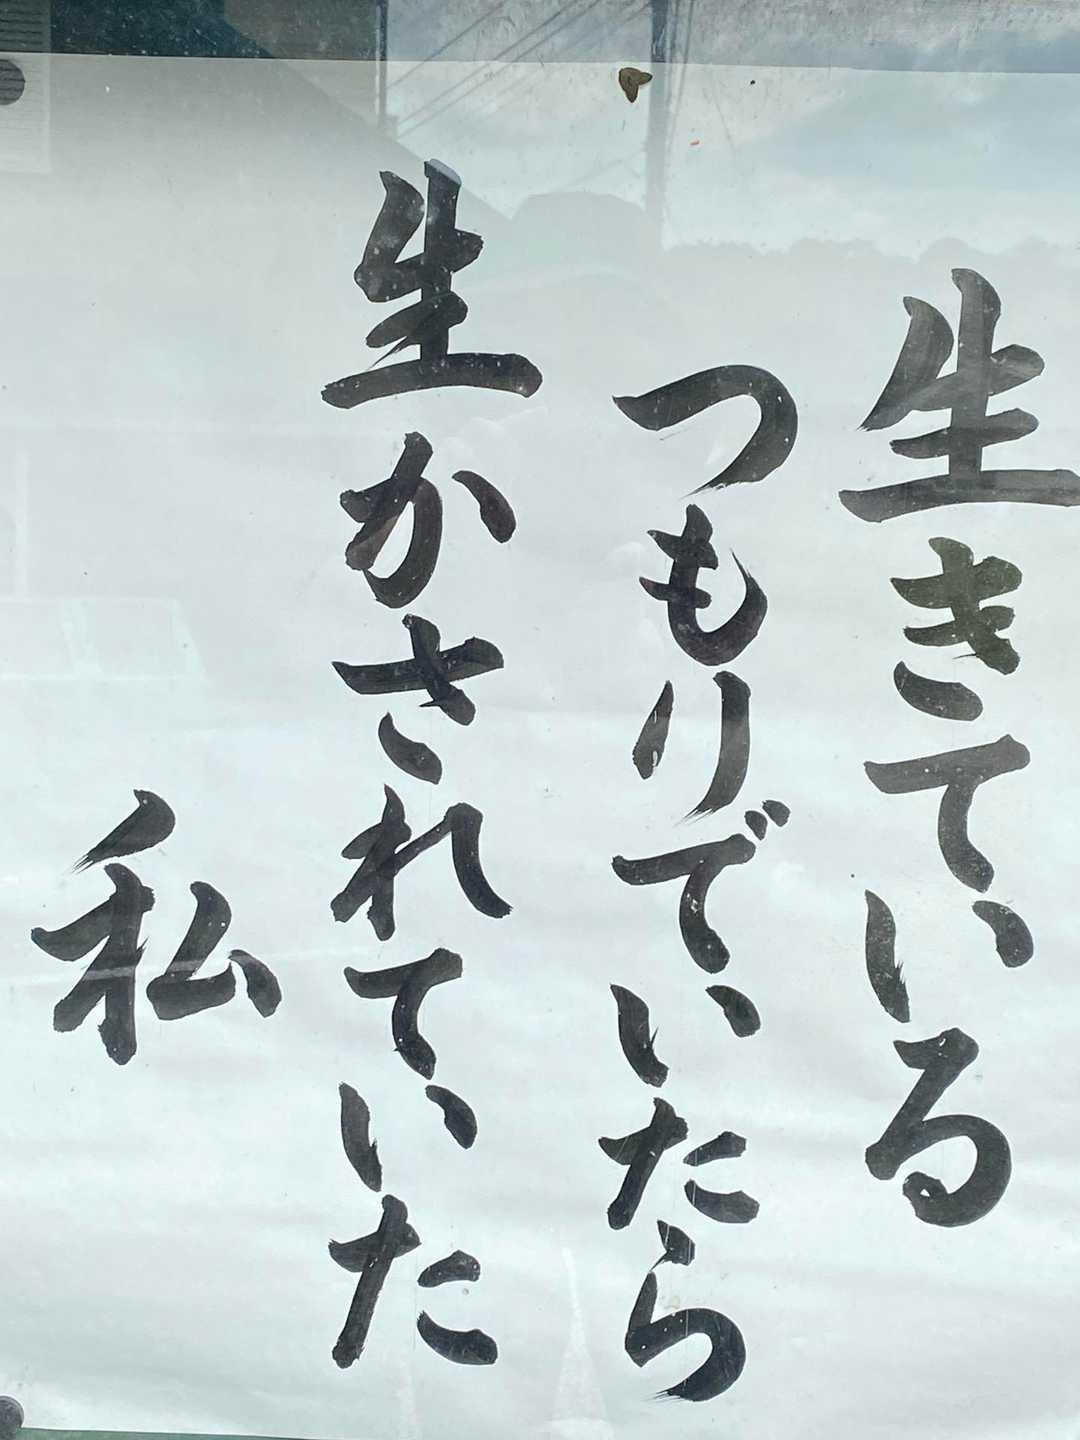 生きている
つもりでいたら
生かされていた
私